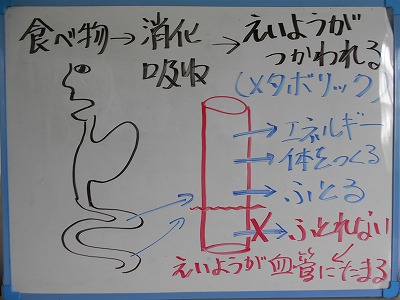 食べ物→消化吸収→えいようがつかわれる
(メタボリック)
→エネルギー
→体をつくる
→ふとる
X→ふとれない
えいようが血管にたまる